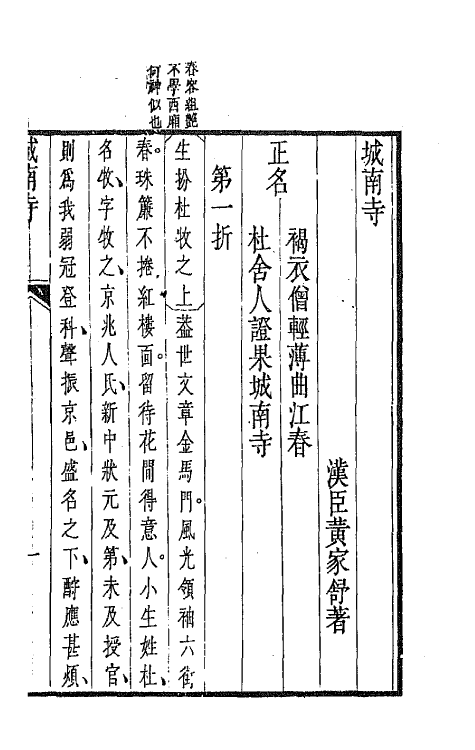 春容組艷
不學西廂
何神似也
城南寺
漢臣黃家舒著
正名
褐衣僧輕薄曲江春
杜舍人證果城南寺
第一折
生扮杜牧之上蓋世文章金馬門。風光領袖六街
春。珠簾不捲紅樓面。留待花間得意人。小生姓杜、
名牧、字牧之、京兆人氏、新中狀元及第、未及授官、
則爲我弱冠登科、聲振京邑、盛名之下、酧應甚煩、
城南寺
一